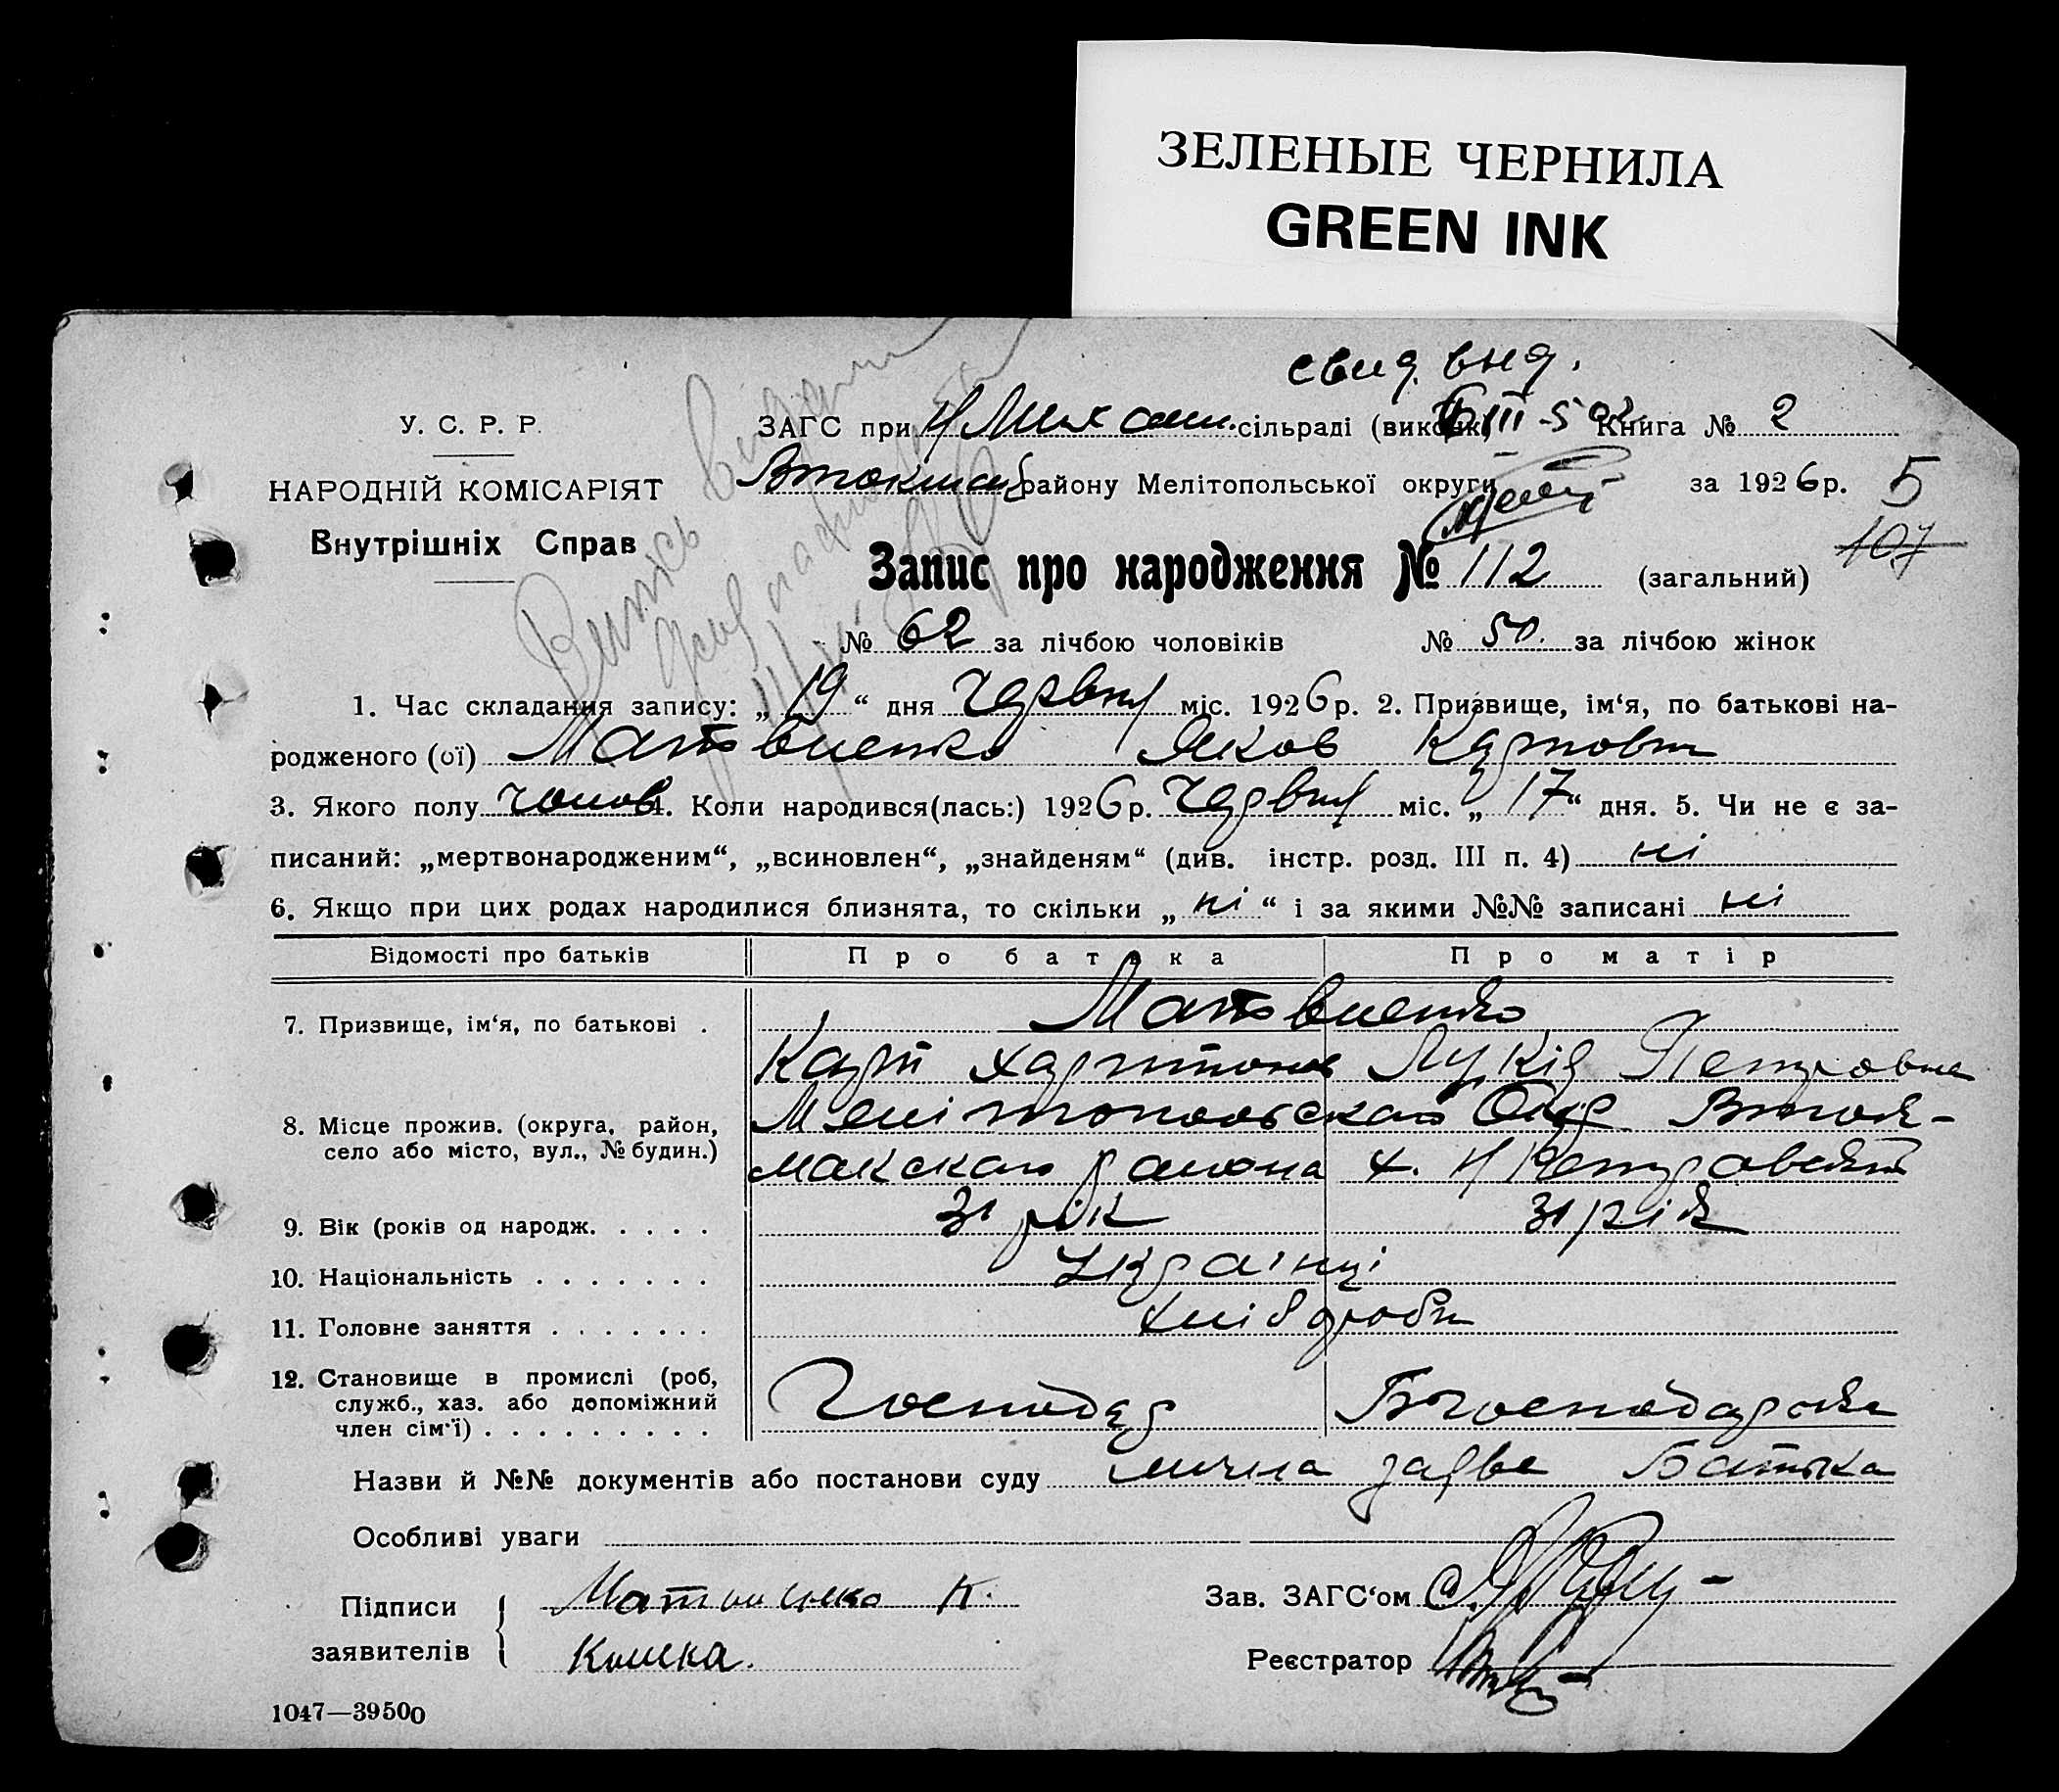 ЗЕЛЕНЫЕ ЧЕРНИЛА
GREEN INK
свид. выд.
У. С. Р. Р.
НАРОДНІЙ КОМІСАРІЯТ
Внутрішніх Справ
ЗАГС при сільраді (викон Книга № 2
району Мелітопольської округи за 1926 р. 5
107
Запис про народження № 112 (загальний)
№ 62 за лічбою чоловіків № 50. за лічбою жінок
1. Час складання запису: „ 19 “ дня Червня міс. 1926 р. 2. Призвище, ім‘я, по батькові на-
родженого (ої) Матвиенко Яков Карпович
3. Якого полу чолов 4. Коли народився(лась:) 1926 р. Червня міс. „ 17 “ дня. 5. Чи не є за-
писаний: „мертвонародженим“, „всиновлен“, „знайденям“ (див. інстр. розд. III п. 4) ні
6. Якщо при цих родах народилися близнята, то скільки „ ні “ і за якими №№ записані ні
Відомості про батьків Про батька Про матір
7. Призвище, ім‘я, по батькові . Матвиенко
Карп Харитонов Лукія Петровна
8. Місце прожив. (округа, район, село або місто, вул., № будин.) Мелітопольскаго Окр Втток-
макскаго района х. Н
9. Вік (років од народж. . . . . 31 рік 31 рік
10. Національність . . . . . . . Українці
11. Головне заняття . . . . . . . хліборобы
12. Становище в промислі (роб, служб., хаз. або допоміжний член сім‘ї) . . . . . . . . . Господар Господарка
Назви й №№ документів або постанови суду лична заява Батька
Особливі уваги
Підписи заявителів Матвиенко К.
Кошка.
Зав. ЗАГС‘ом
Реєстратор
1047—39500